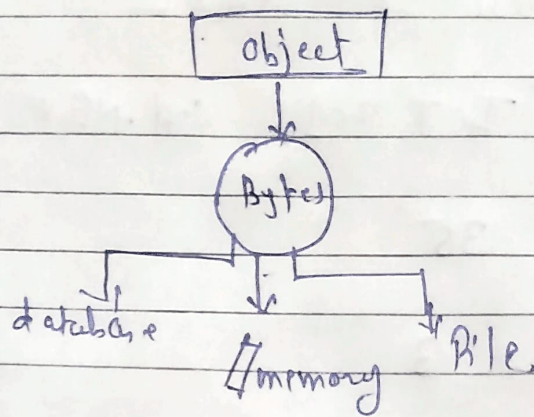 Object
Bytes
database
memory
File